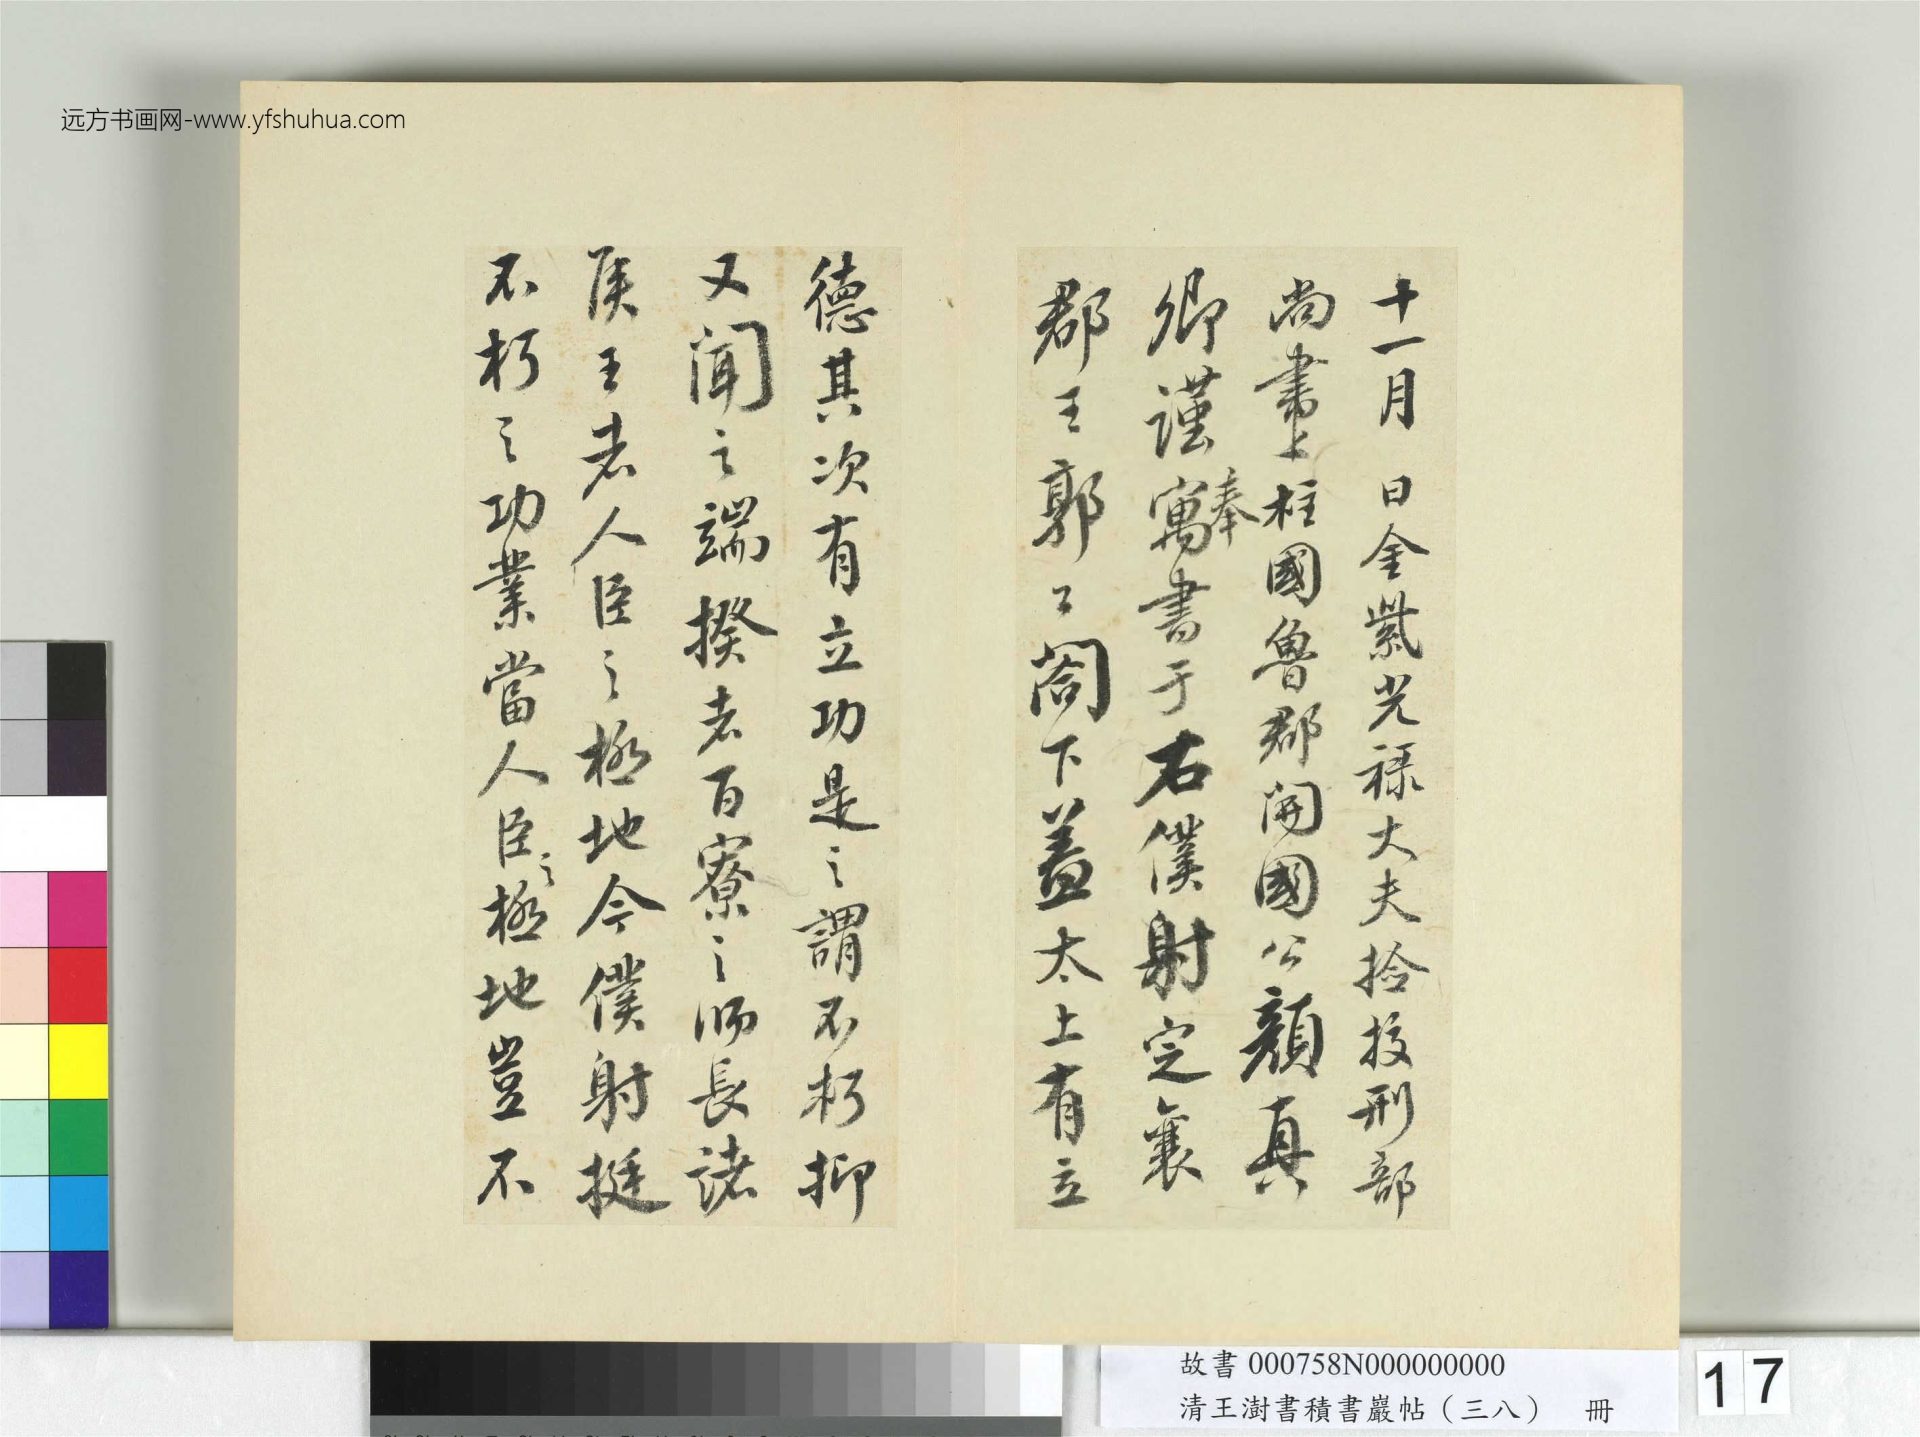 远方书画网-www.yfshuhua.com
十一月 日金紫光祿大夫撿挍刑部
尚書上柱國魯郡開國公顔真
卿謹奉寓書于右僕射定襄
郡王郭公閤下蓋太上有立
德其次有立功是之謂不朽抑
又聞之端揆者百寮之師長諸
侯王者人臣之極地今僕射挺
不朽之功業當人臣之極地豈不
故書 000758N000000000
清王澍書積書巖帖（三八） 冊
17